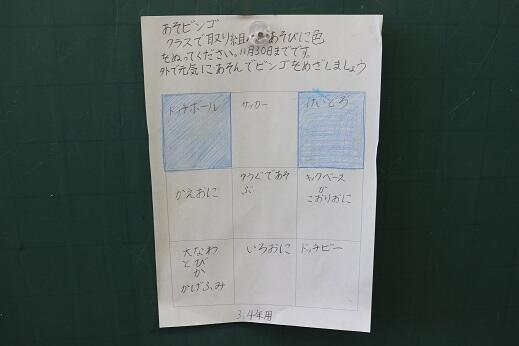 あそビンゴ
クラスで取り組んだあそびに色
をぬってください。11月30日までです。
外で元気にあそんでビンゴをめざしましょう
ドッチボール
サッカー
けいどろ
かえおに
ゆうぐであそ
ぶ
キックベース
か
こおりおに
大なわ
とび
か
かげふみ
いろおに
ドッチビー
3.4年用